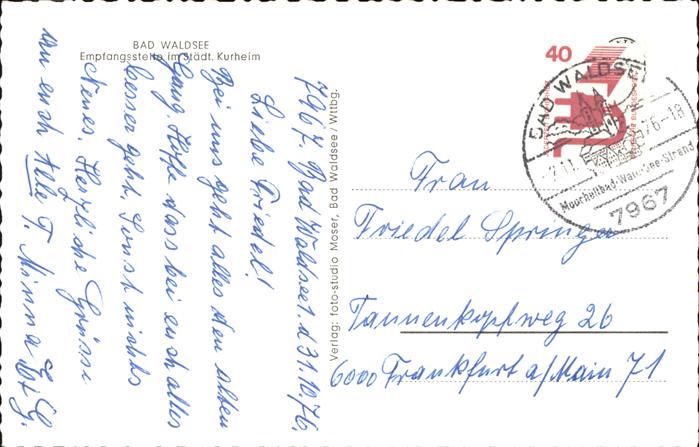 BAD WALDSEE
Empfangsstelle im Städt. Kurheim
7967 Bad Waldsee d 31.10.76,
Liebe Friedel!
Bei uns geht alles den alten
Gang. Hoffe dass bei euch alles
besser geht. Sonst nichts
Neues. Herzliche Grüsse
an euch Alle T. Minna
Verlag: foto-studio Moser, Bad Waldsee / Wttbg.
40
DEUTSCHE BUNDESPOST
BAD WALDSEE
76-18
Moorheilbad-Wald-See-Strand
7967
Frau
Friedel Springer
Tannenkopfweg 26
6000 Frankfurt a/Main 71